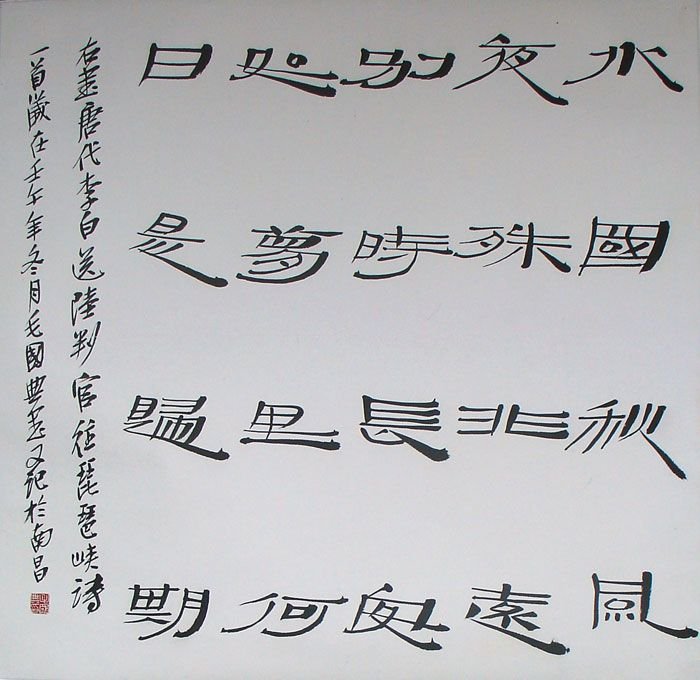 水國秋風
夜殊非遠
別時長安
如夢里何
日是歸期
右書唐代李白送陸判官往琵琶峽詩
一首歲在壬午年冬月毛國典書又記於南昌